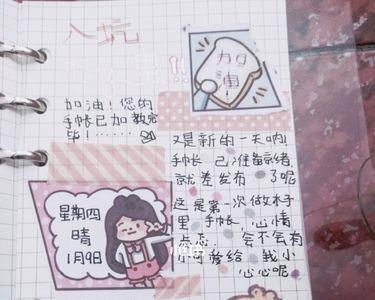 入坑
!!
加
油!
加油!您的
手帐已加载完
毕!······
又是新的一天呐!
手帐 已准备就绪
就差发布 了呢
这是第一次做本子
里 手帐 心情
忐忑. 会不会有
小可爱给 我小
心心呢
星期四
晴
1月9日